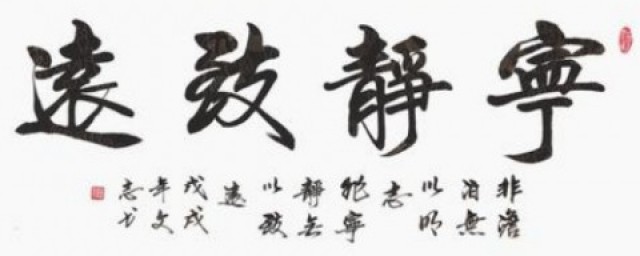 寧靜致遠
非澹
泊無
以明
志
非寧
靜无
以致
遠
戊戌
年文
志书